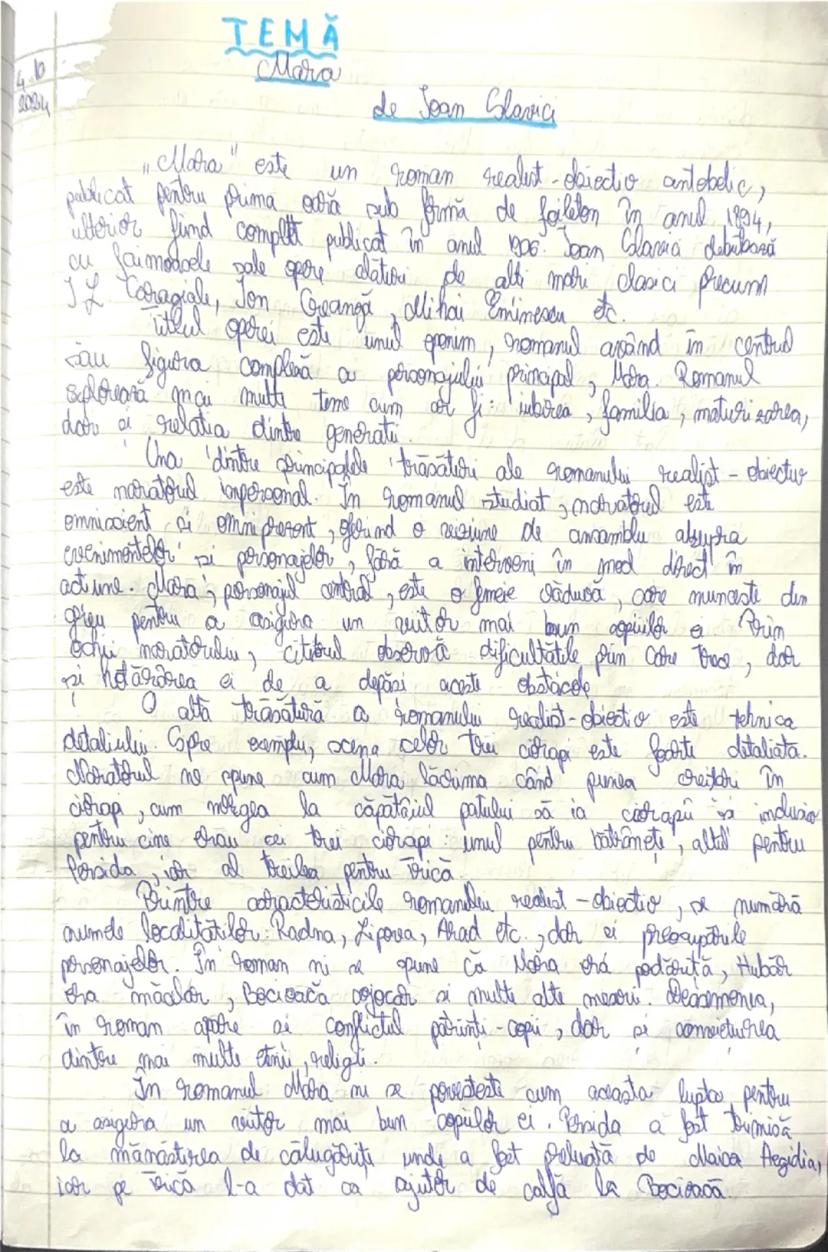 TEMĂ
4.10
2024
Mara
de Ioan Slavici
"Mara" este un roman realist-obiectiv antebelic,
publicat pentru prima oară sub formă de foileton în anul 1894,
ulterior fiind complet publicat în anul 1906. Ioan Slavici debutează
cu faimoasele sale opere alături de alți mari clasici precum
I L Caragiale, Ion Creangă, Mihai Eminescu etc.
Titlul operei este unul eponim, romanul având în centrul
său figura complexă a personajului principal, Mara. Romanul
explorează mai multe teme cum ar fi: iubirea, familia, maturizarea,
dar și relația dintre generații.
Una dintre principalele trăsături ale romanului realist-obiectiv
este naratorul impersonal. În romanul studiat, naratorul este
omniscient și omniprezent, oferind o viziune de ansamblu asupra
evenimentelor și personajelor, fără a interveni în mod direct în
acțiune. Mara, personajul central, este o femeie văduvă, care muncește din
greu pentru a asigura un viitor mai bun copiilor ei. Prin
ochii naratorului, cititorul observă dificultățile prin care trec, dar
și hotărârea ei de a depăși aceste obstacole
O altă trăsătură a romanului realist-obiectiv este tehnica
detaliului. Spre exemplu, scena celor trei ciorapi este foarte detaliată.
Naratorul ne spune cum Mara lăcrima când punea creițari în
ciorapi, cum mergea la căpătâiul patului să ia ciorapii și inclusiv
pentru cine erau cei trei ciorapi: unul pentru bătrânețe, altul pentru
Persida, iar al treilea pentru Trică.
Printre caracteristicile romanului realist-obiectiv, se numără
numele localităților: Radna, Lipova, Arad etc., dar și preocupările
personajelor. În roman ni se spune că Mara era podăriță, Hubăr
era măcelar, Bocioacă cojocar și multe alte meserii. Deasemenea,
în roman apare și conflictul părinți-copii, dar și conviețuirea
dintre mai multe etnii, religii.
În romanul Mara ni se povestește cum aceasta lupta pentru
a asigura un viitor mai bun copiilor ei. Persida a fost trimisă
la mănăstirea de călugărițe unde a fost preluată de Maica Aegidia,
iar pe Trică l-a dat ca ajutor de calfă la Bocioacă.